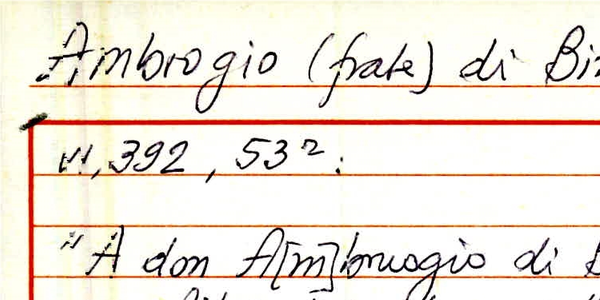 Ambrogio (frate) di
", 392, 53²:
"A don A[m]bruogio di